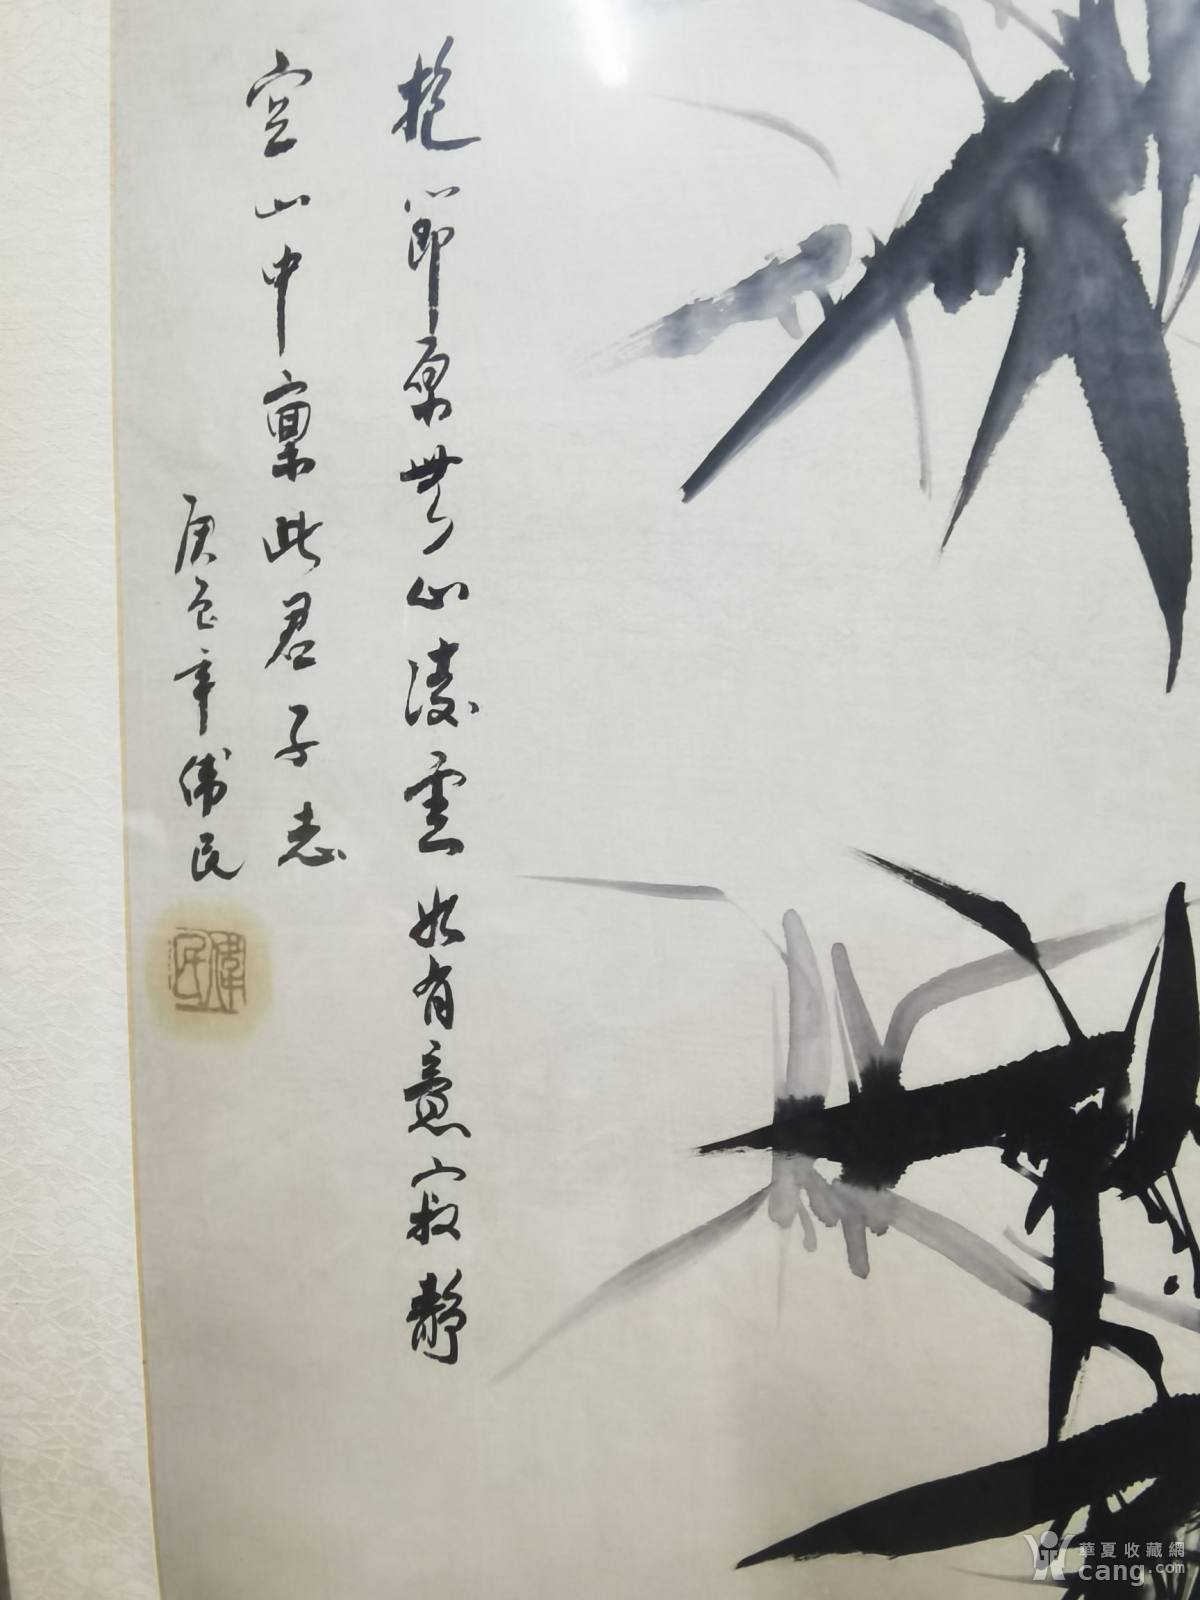 抱節原無心凌雲如有意寂靜
空山中稟此君子志
庚辰年偉民
偉民
華夏收藏網
cang.com